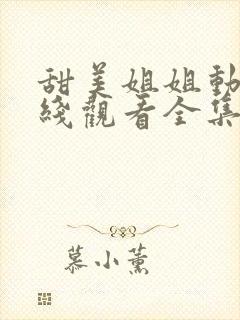 甜美姐姐動
綫觀看全集
慕小薰